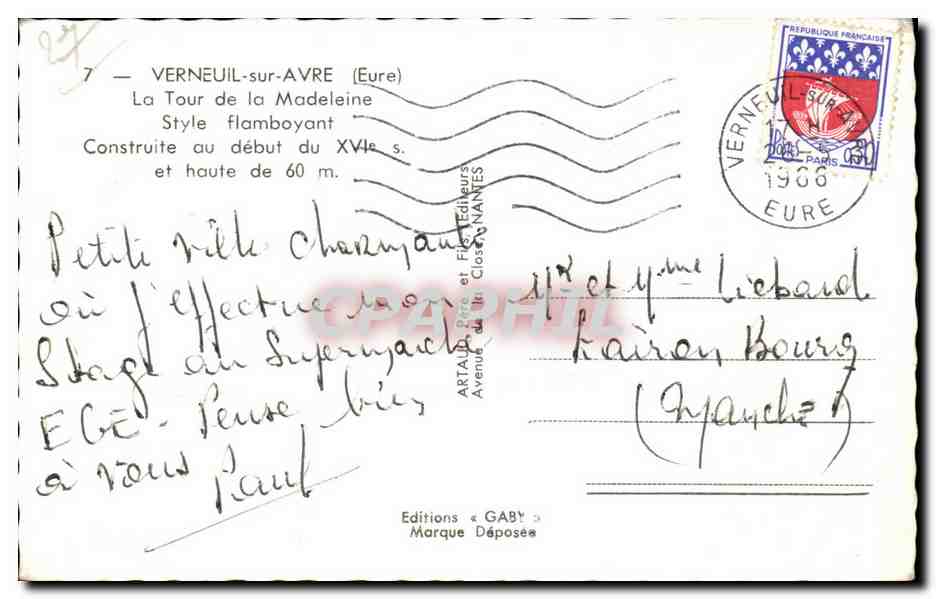 27
7 — VERNEUIL-sur-AVRE (Eure)
La Tour de la Madeleine
Style flamboyant
Construite au début du XVIe s.
et haute de 60 m.
Petite ville charmante
où j'effectue mon
Stage au Supermarché
EGÉ - Pense bien
à vous
Paul
ARTAUD Père et Fils, Editeurs
Avenue de la Close, NANTES
Editions « GABY »
Marque Déposée
REPUBLIQUE FRANÇAISE
PARIS
VERNEUIL-SUR-AVRE
1966
EURE
Mr et Mme Liebard
Lairon Bourg
(Manche)
CPAPHIL